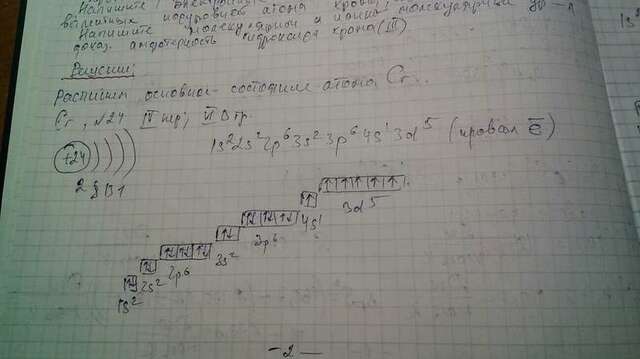 Напишите электронные
валентных подуровней атома хрома.
Напишите молекулярные и ионные
доказ. амфотерность гидроксида хрома (III)
Решение:
Распишем основное состояние атома Cr.
Cr, №24 IV пер, VI B гр.
+24
1s²2s²2p⁶3s²3p⁶4s¹3d⁵ (провал ē)
2 8 13 1
3d⁵
4s¹
3p⁶
3s²
2p⁶
2s²
1s²
-2-